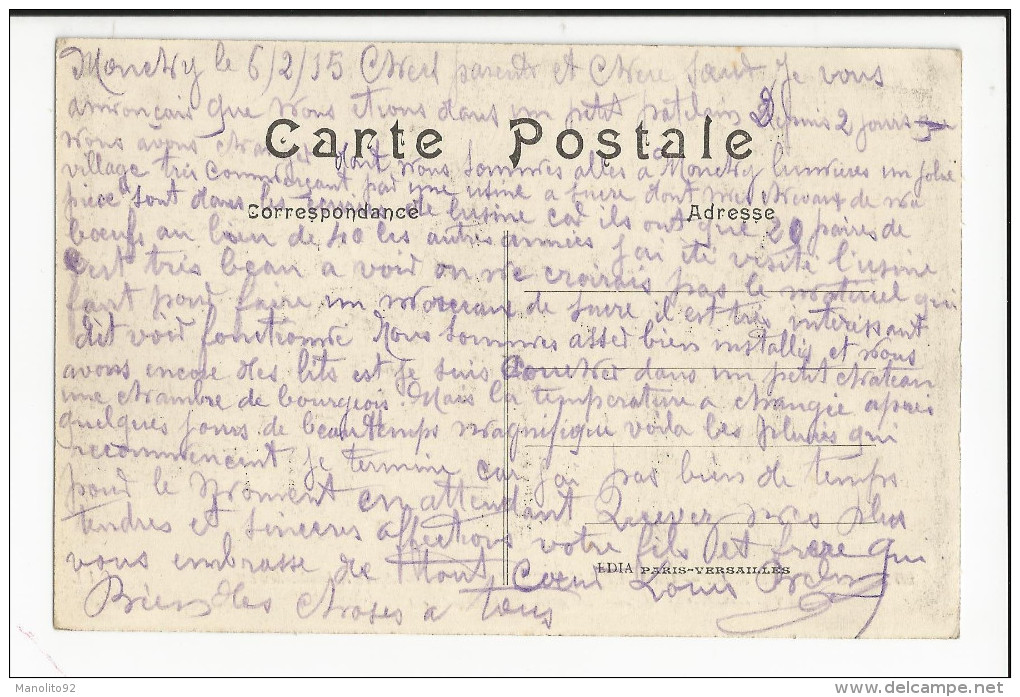 Monchy le 6/2/15 Chers parents et Chère Sœur Je vous
annonçais que nous etions dans un petit patelin Depuis 2 jours
nous avons changé nous sommes allés a Monchy humières un jolie
Carte Postale
village très commerçant par une usine a sucre dont mes chevaux de ma
pièce sont dans les de lusine car ils ont que 20 paires de
Correspondance Adresse
bœufs au lieu de 40 les autres années J'ai été visité l'usine
c'est très beau a voir on ne croirais pas le materiel qui
faut pour faire un morceaux de sucre il est très intéressant
dit voir fonctionné Nous sommes assez bien installés et nous
avons encore des lits est je suis Coucher dans un petit chateau
une chambre de bourgeois. Mais la température a changée après
quelques jours de beau temps magnifique voila les pluies qui
recommencent je termine car jai pas bien de temps
pour le moment en attendant Recevez mes plus
tendres et sincères affections votre fils et frère qui
vous embrasse de Cœur Louis
EDIA PARIS-VERSAILLES
Bien des choses a tous
Manolito92
delcampe.net